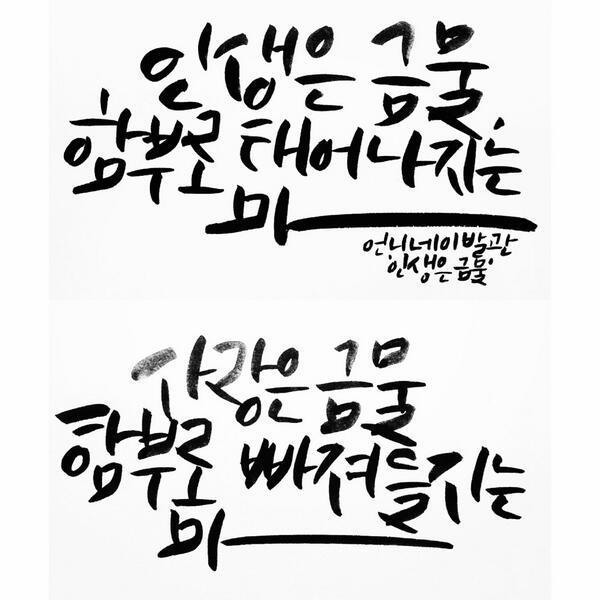 인생은 금물,
함부로 태어나지는
마
언니네이발관
'인생은금물'
사랑은 금물
함부로 빠져들지는
마